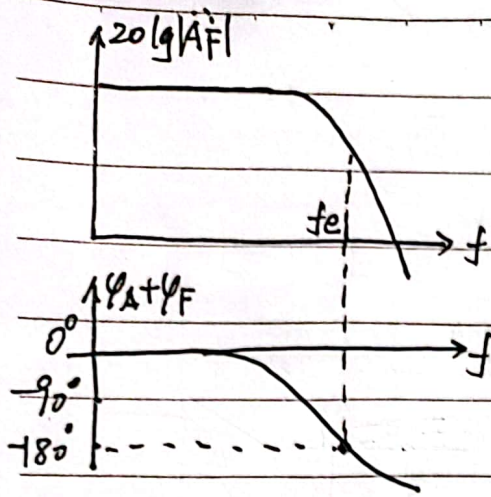 20lg|ȦḞ|
fe
f
φA+φF
0°
f
-90°
-180°